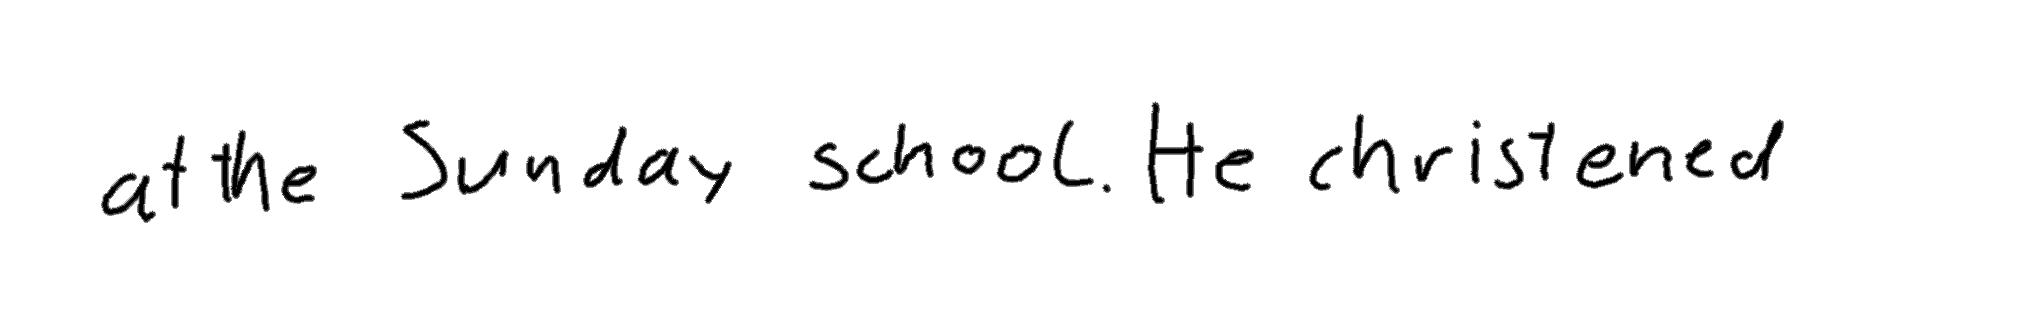 at the Sunday school. He christened